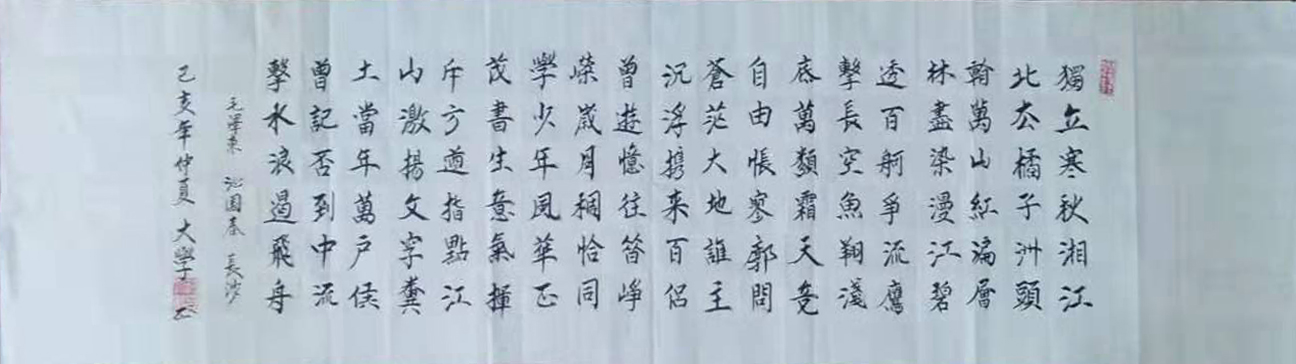 獨立寒秋湘江
北去橘子洲頭
翰萬山紅遍層
林盡染漫江碧
透百舸爭流鷹
擊長空魚翔淺
底萬類霜天竞
自由悵寥郭問
蒼茫大地誰主
沉浮携来百侣
曾遊憶往昝崢
嶸嵗月稠恰同
學少年風華正
茂書生意氣揮
斥方遒指點江
山激揚文字糞
土當年萬户侯
曾記否到中流
擊水浪遏飛舟
毛澤東 沁园春 長沙
己亥年仲夏 大學